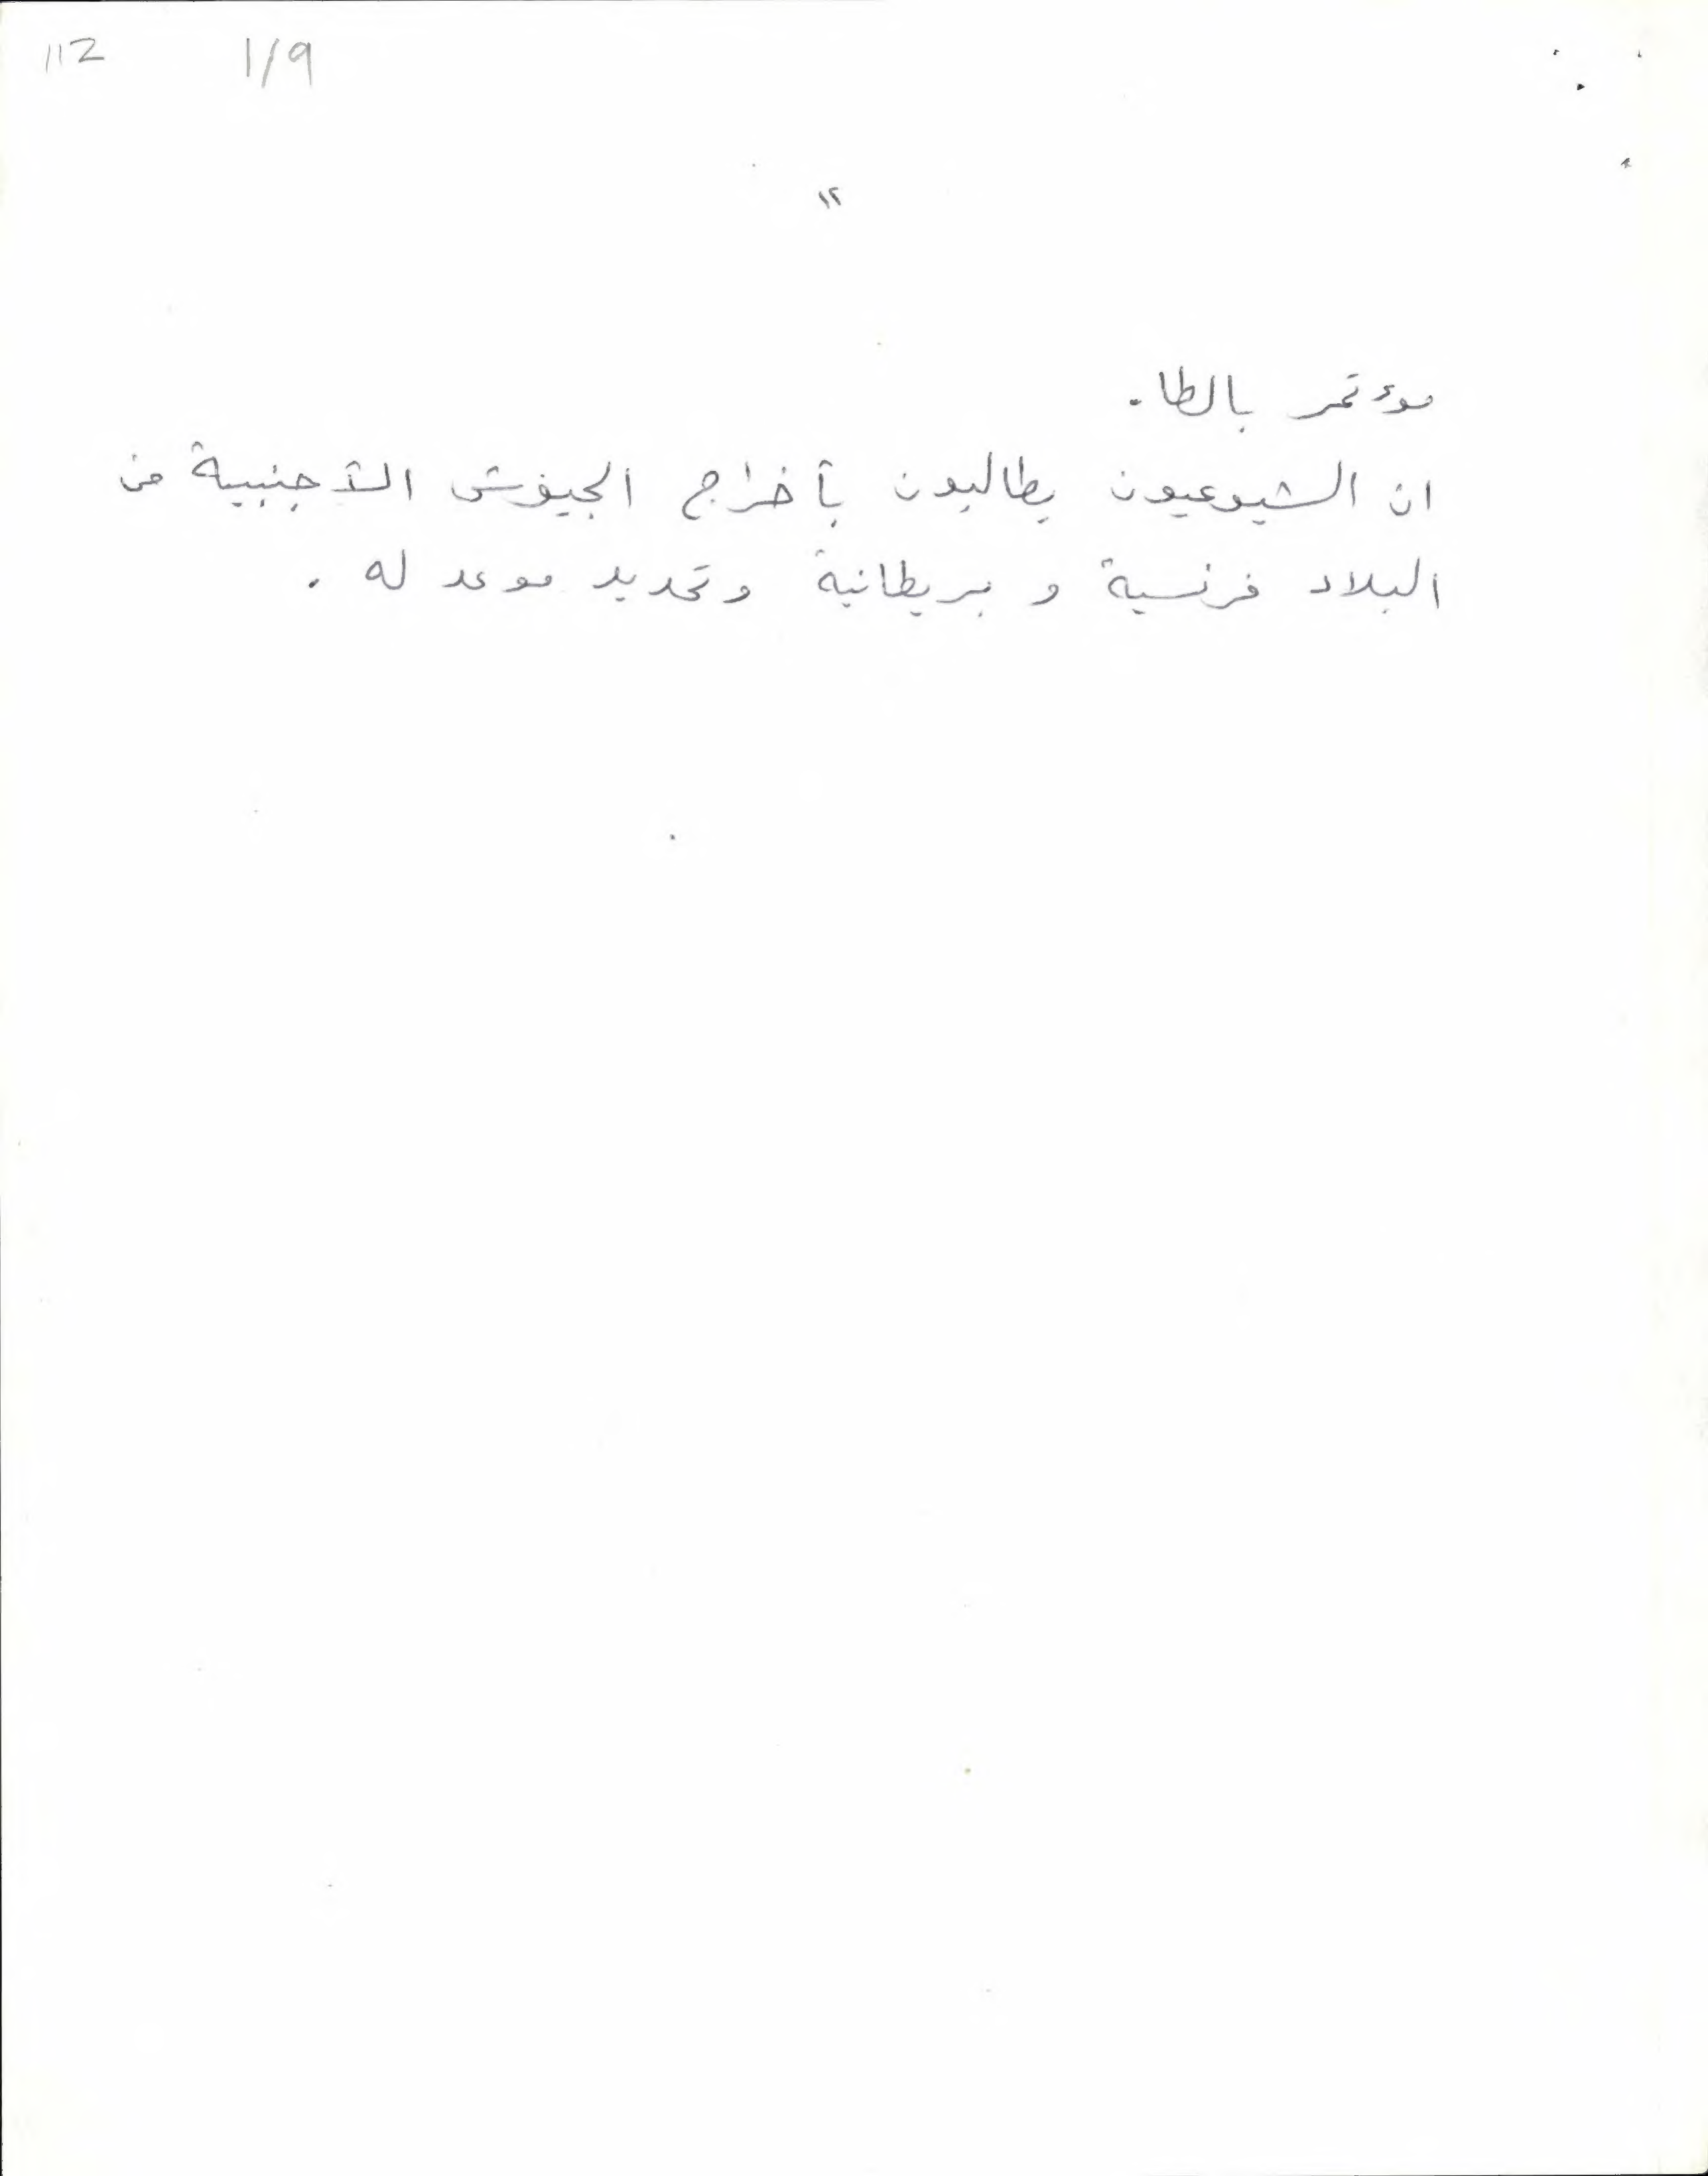 112 1/9
١٢
مؤتمر بالطا.
ان الشيوعيون يطالبون بأخراج الجيوش الأجنبية من
البلاد فرنسية و بريطانية وتحديد موعد له .